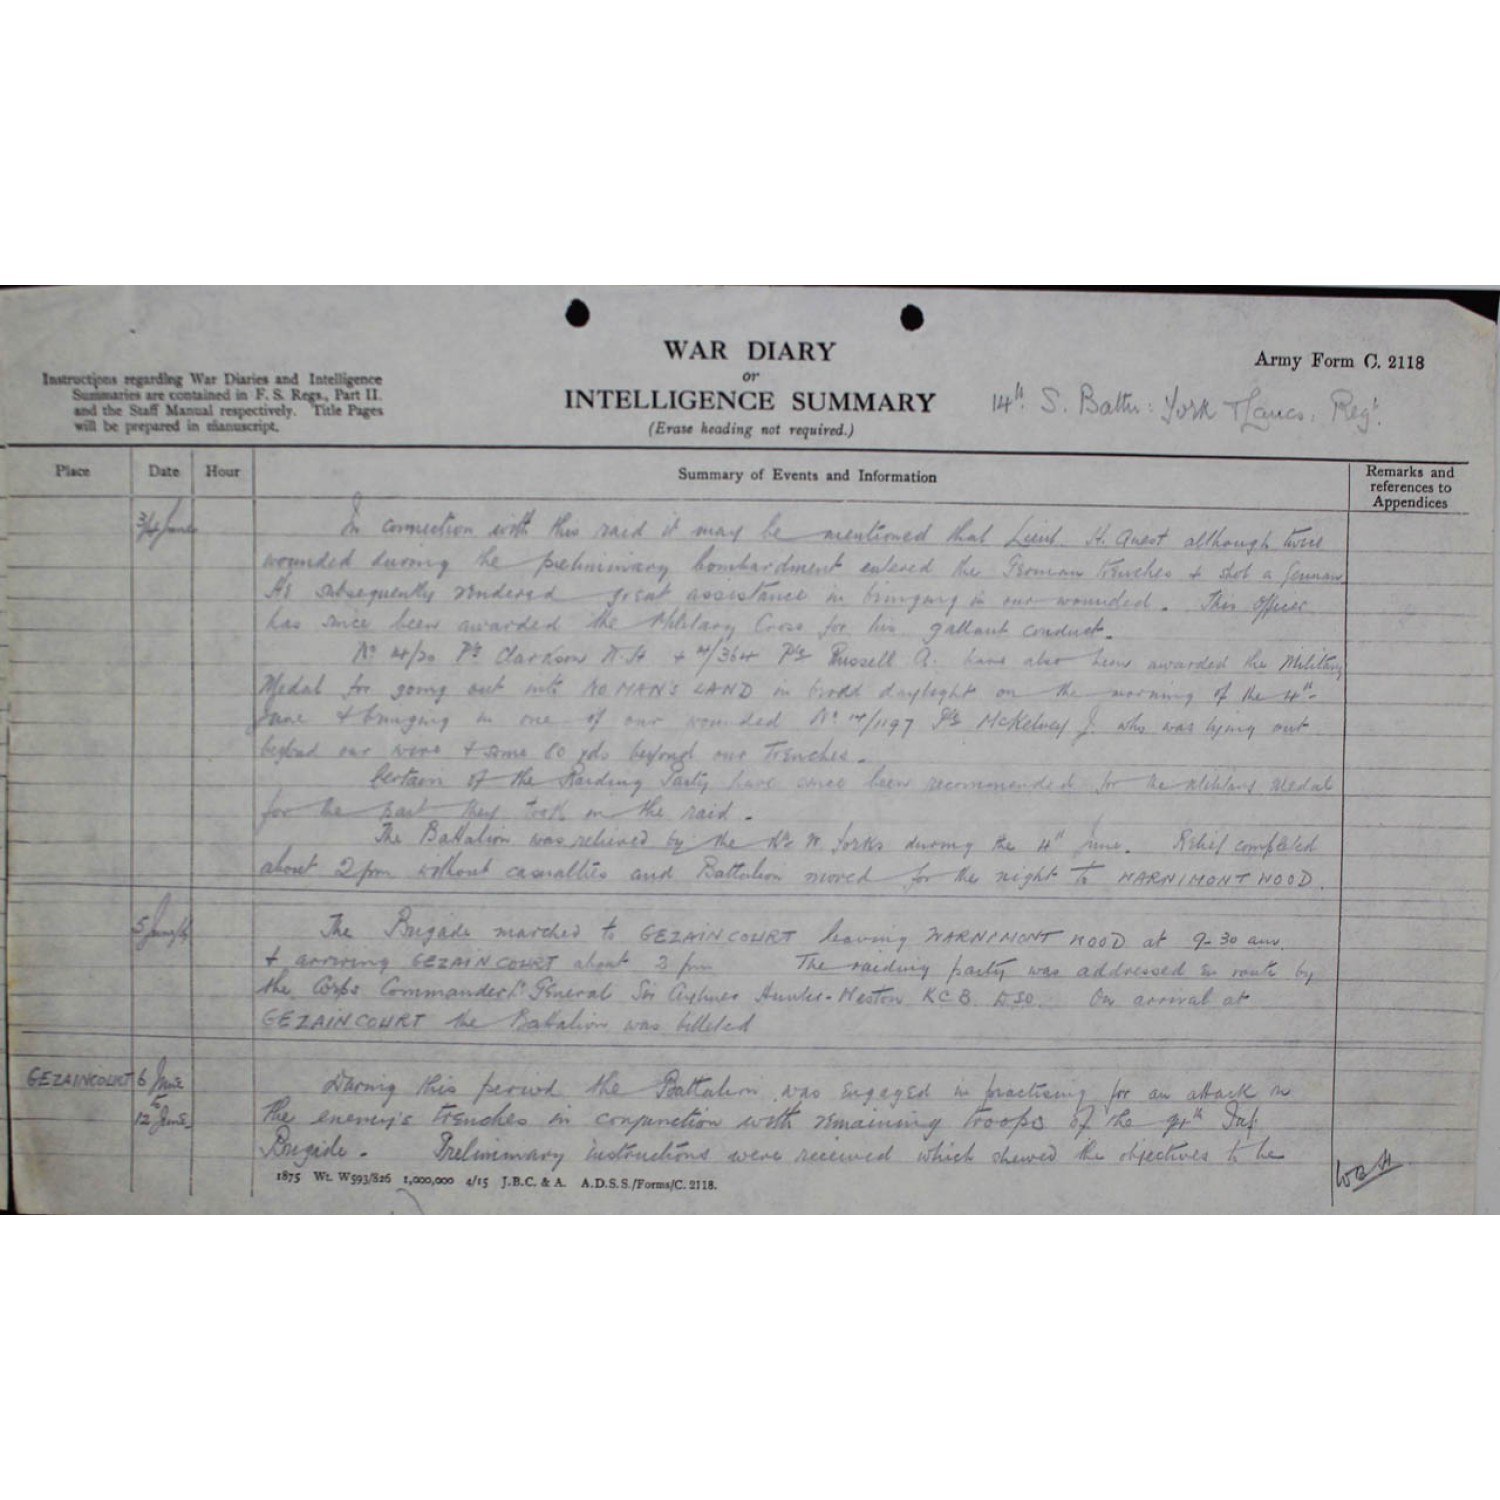 WAR DIARY
or
INTELLIGENCE SUMMARY
(Erase heading not required.)
Army Form C. 2118
Instructions regarding War Diaries and Intelligence
Summaries are contained in F. S. Regs., Part II.
and the Staff Manual respectively. Title Pages
will be prepared in manuscript.
14th S. Battn: York & Lancs. Regt.
Place Date Hour Summary of Events and Information Remarks and
references to
Appendices
3/4 June In connection with this raid it may be mentioned that Lieut. H. Quest although twice
wounded during the preliminary bombardment entered the German trenches & shot a German.
He subsequently rendered great assistance in bringing in our wounded. This officer
has since been awarded the Military Cross for his gallant conduct.
No 14/20 Pte Clarkson & 14/364 Pte Russell A. have also been awarded the Military
Medal for going out into NO MAN'S LAND in broad daylight on the morning of the 4th
June & bringing in one of our wounded No 14/1197 Pte McKelvey J. who was lying out
beyond our wire & some 80 yds beyond our Trenches.
Certain of the Raiding Party have since been recommended for the Military Medal
for the part they took in the raid.
The Battalion was relieved by the W. Yorks during the 4th June. Relief completed
about 2 pm without casualties and Battalion moved for the night to WARNIMONT WOOD.
5 June The Brigade marched to GEZAINCOURT leaving WARNIMONT WOOD at 9-30 am
& arriving GEZAINCOURT about 3 pm The raiding party was addressed en route by
the Corps Commander Lt General Sir Aylmer Hunter-Weston KCB DSO. On arrival at
GEZAINCOURT the Battalion was billeted
GEZAINCOURT 6 June During this period the Battalion was engaged in practising for an attack on
to
12 June the enemy's trenches in conjunction with remaining troops of the Inf
Brigade. Preliminary instructions were received which shewed the objectives to be
1875 Wt. W593/826 1,000,000 4/15 J.B.C. & A. A.D.S.S./Forms/C. 2118.